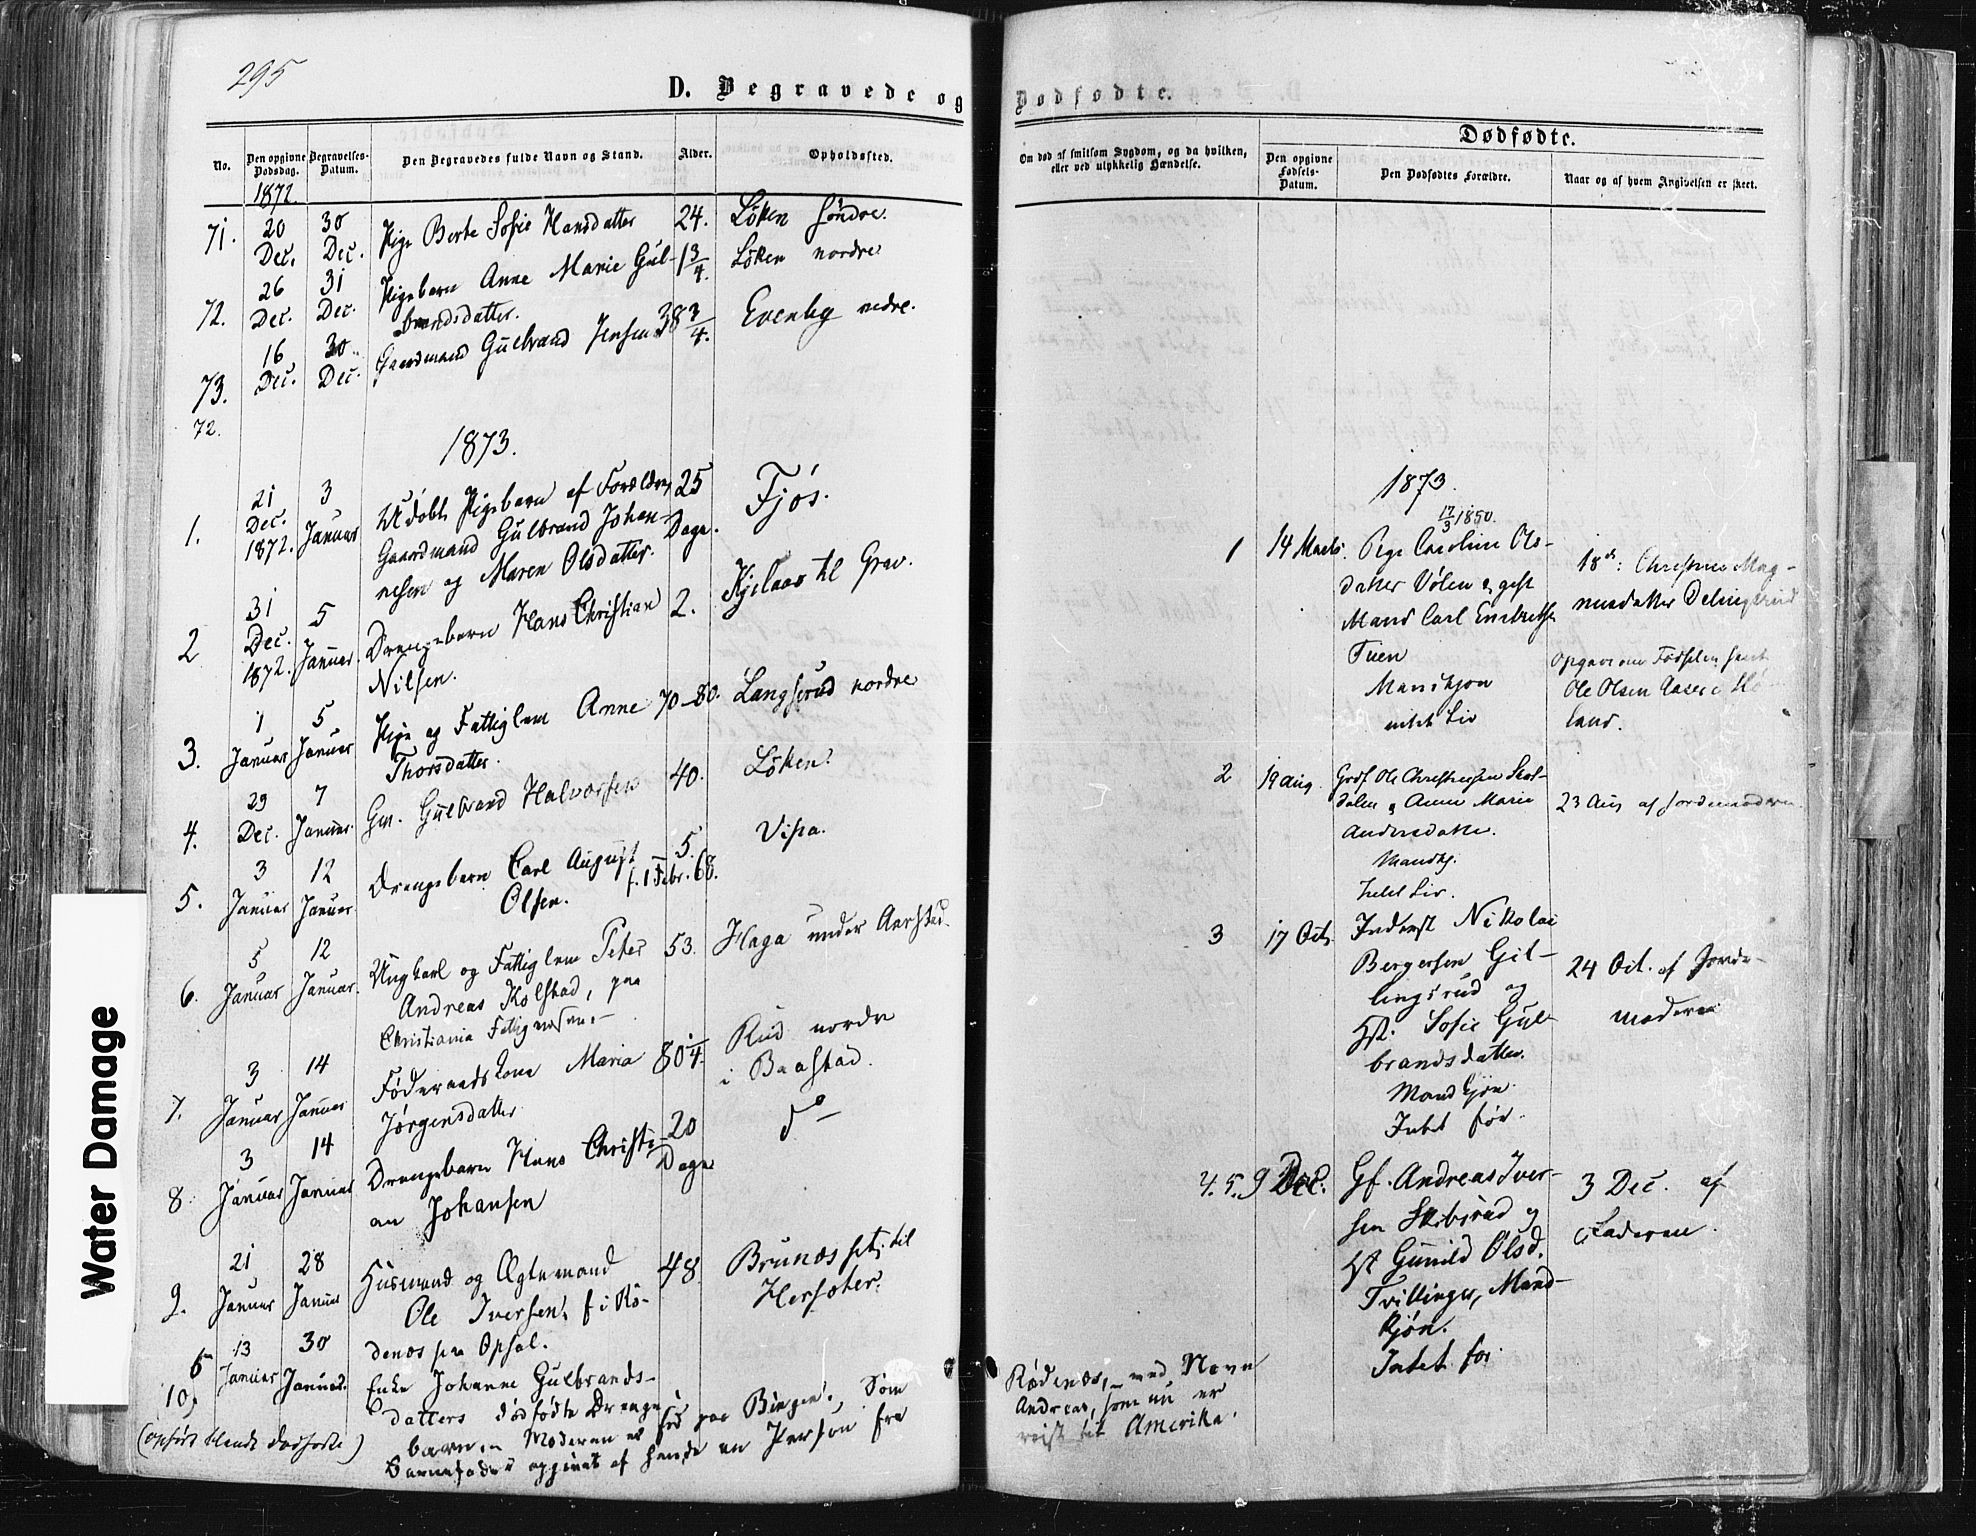 295
D. Begravede og
No.
Den opgivne Dødsdag.
Begravelses-Datum.
Den Begravedes fulde Navn og Stand.
Alder.
Opholdssted.
1872.
71. 20 Dec. 30 Dec. Pige Berte Sofie Hansdatter 24. Løken søndre.
72. 26 Dec. 31 Dec. Pigebarn Anne Marie Gul- 1 3/4. Løken nordre
brandsdatter.
73. 16 Dec. 30 Dec. Gaardmand Gulbrand Jensen 38 3/4. Evenby nedre.
72.
1873.
1. 21 Dec. 1872. 3 Januar Udøbt Pigebarn af Forældre 25 Dage. Fjøs.
Gaardmand Gulbrand Johan-
nesen og Maren Olsdatter.
2 31 Dec. 1872. 5 Januar. Drengebarn Hans Christian 2. Kjelaas til Grav.
Nilsen.
3. 1 Januar 5 Januar Pige og Fattiglem Anne 70-80. Langsrud nordre
Thorsdatter.
4. 29 Dec. 7 Januar. Gm. Gulbrand Halvorsen 40. Løken.
5. 3 Januar 12 Januar. Drengebarn Carl August 5. Visa.
Olsen. f. 1 Febr. 68.
6. 5 Januar 12 Januar. Ungkarl og Fattiglem Peter 53. Haga under Aarstad.
Andreas Kolstad, paa
Christiania Fattigvæsen.
7. 3 Januar 14 Januar Føderaadskone Maria 80 1/4. Rud nordre
Jørgensdatter i Baastad.
8. 3 Januar 14 Januar Drengebarn Hans Christi- 20 Dage do
an Johansen
9. 21 Januar 28 Januar Husmand og Ægtemand 48. Brunæs pl. til
Ole Iversen, f. i Rø- Hersæter.
denæs pr Opsal.
10, 13 Januar 30 Januar. Enke Johanne Gulbrands-
datters dødfødte Drenge
barn. Moderen er fød paa Bingen. Som
Barnefader opgivet af hende en Person fra
(opført blandt dødfødte)
Dødfødte.
Om død af smitsom Sygdom, og da hvilken,
eller ved ulykkelig Hændelse.
Dødfødte.
Den opgivne Fødsels-Datum.
Den Dødfødtes Forældre.
Naar og af hvem Angivelsen er skeet.
1873.
17/3 1850.
1 14 Marts. Pige Caroline Ols-
datter Vølen & gift
Mand Carl
Tuen
Mandkjøn
intet Liv
18de: Christine Mag-
nusdatter
Opgave om Fødselen
Ole Olsen Aaser i Hø-
land.
2 19 Aug Grdf. Ole Christensen
dalen & Anne Marie
Andersdatter.
Mandkj.
Intet Liv.
23 Aug af Jordemoderen
3 17 Oct. Inderst Nikolai
Bergersen Git-
lingsrud og
Hst. Sofie Gul-
brandsdatter.
Mandkjøn.
Intet før.
24 Oct. af Jorde-
moderen
4. 5. 9 Dec. Gf. Andreas Iver-
sen Skibsrud og
Hst Gunild Olsd.
Tvillinger, Mand-
kjøn.
Intet før
3 Dec. af
Faderen.
Rødenæs, med Navn
Andreas, som nu er
reist til Amerika.
Water Damage